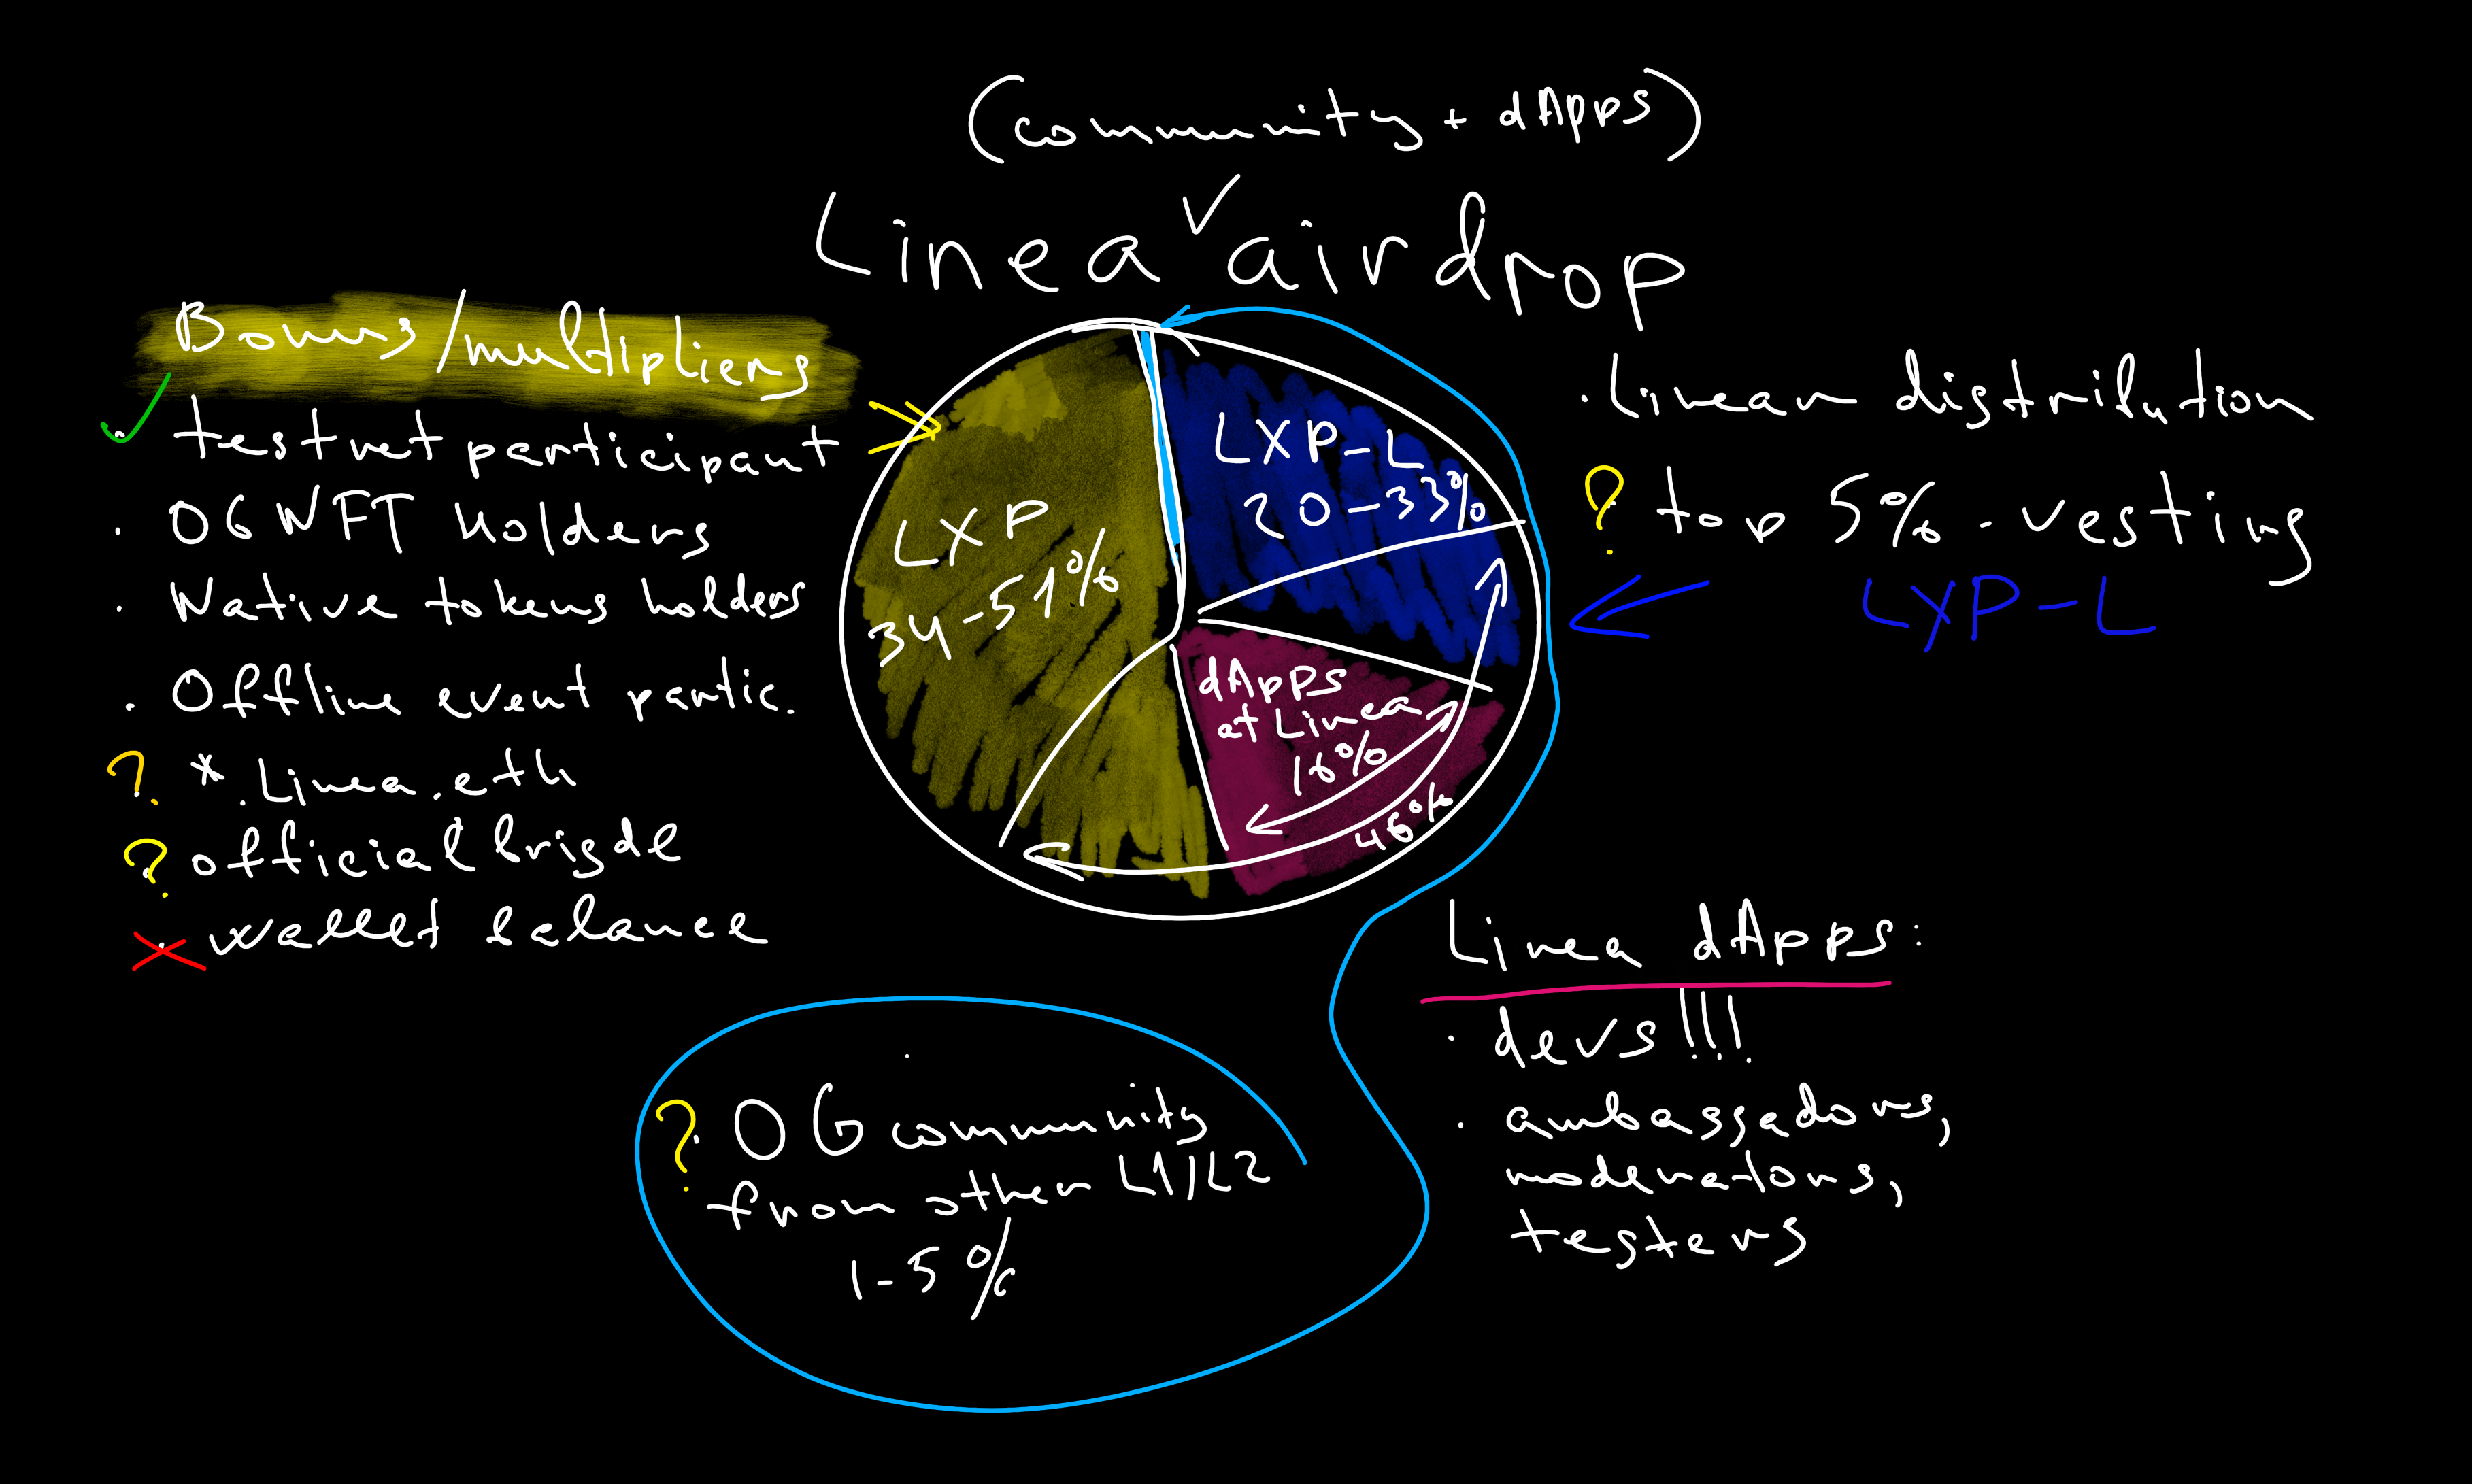 (community + dApps)
Linea airdrop
Bonus/multipliers
testnet participant
OG NFT holders
Native tokens holders
Offline event partic.
? *.Linea.eth
? official brigde
wallet balance
LXP
34-51%
LXP-L
20-33%
dApps
at Linea
16%
46%
. Linear distribution
? top 5% - vesting
LXP-L
Linea dApps:
. devs!!!
. ambassadors,
moderators,
testers
? OG community
from other L1/L2
1-5%